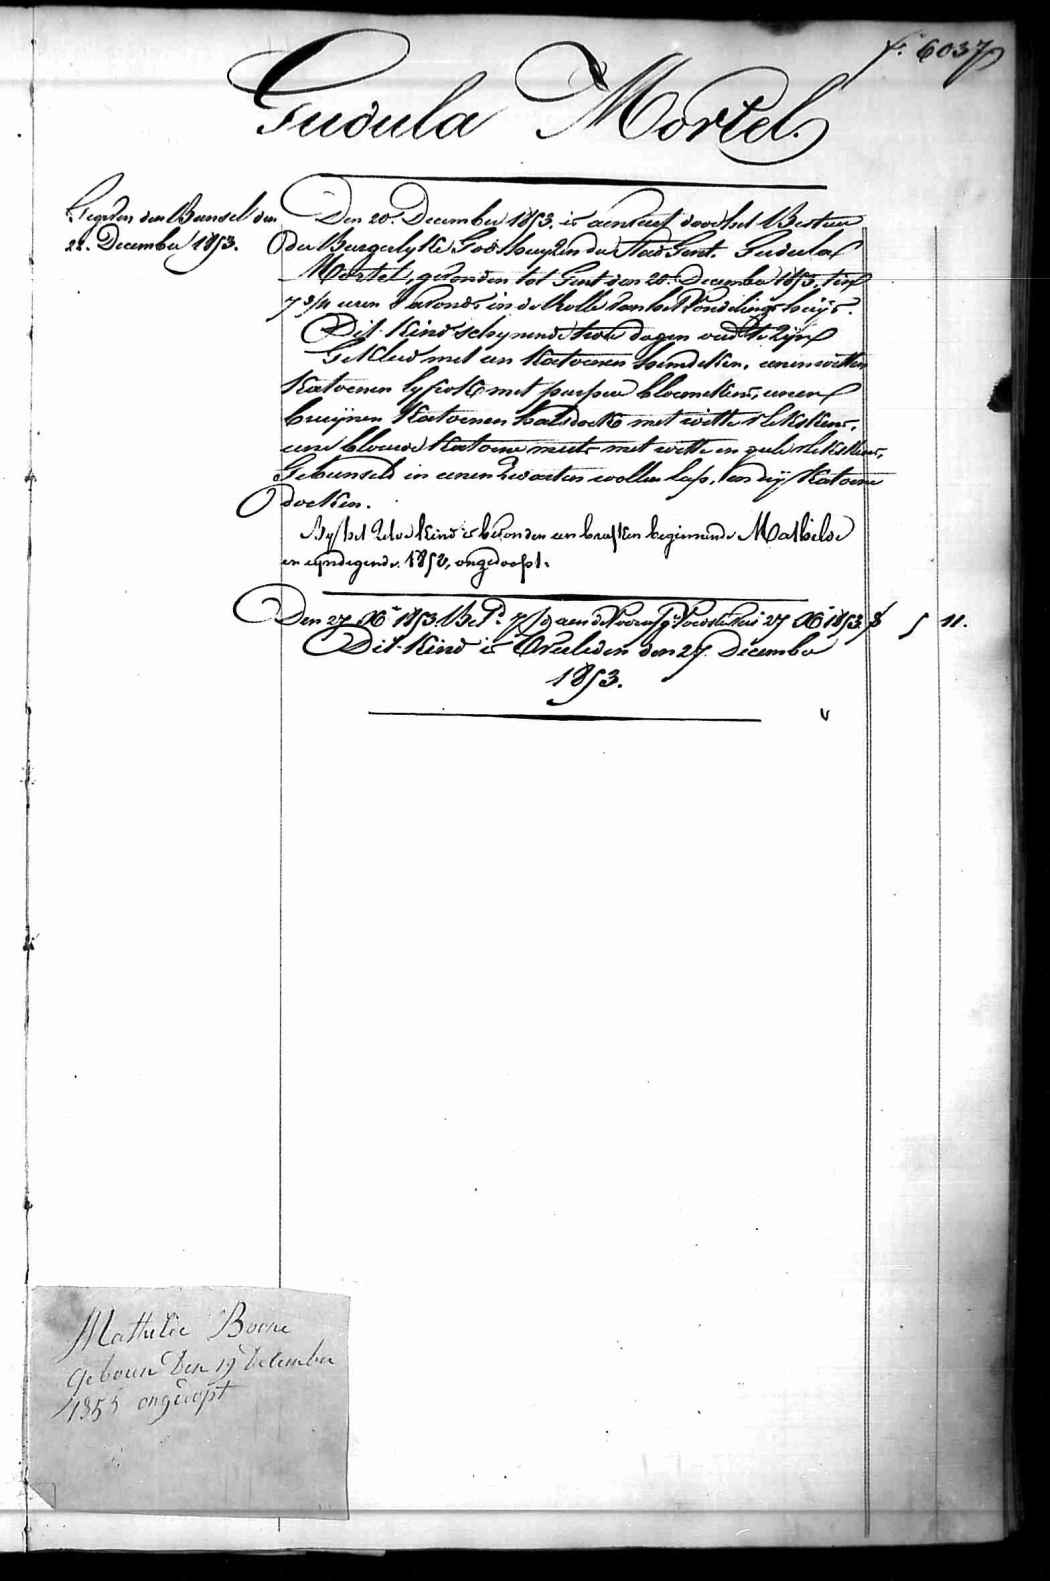 f. 6037
Gudula Mortel.
Gegeven den Bunsel den
22. December 1853.
Den 20. December 1853. is aenveert door het Bestuer
der Burgerlyke Godshuyzen der Stad Gent. Gudula
Mortel, gevonden tot Gent den 20. December 1853, ten
7 3/4 uren 's avonds in de Rolle van het Vondelingshuijs.
Dit Kind schynende twee dagen oud te zijn
Gekleed met een Katoenen hemdeken, eenen witten
Katoenen lyfrok met purper bloemekens, eenen
bruijnen Katoenen halsdoek met witte stekskens,
eene blauwe Katoene muts met witte en gele stekskens,
Gebunseld in eenen zwarten wollen lap, en dij Katoene
doeken.
By het zelve Kind is bevonden een briefken beginnende Mathilde
en eyndegende 1853, ongedoopt.
Den 27 Xbr 1853 aen de 27 Xbr 1853 5 11.
Dit Kind is Overleden den 27. December
1853.
Mathilde Boone
geboren den 19 december
1853 ongedopt